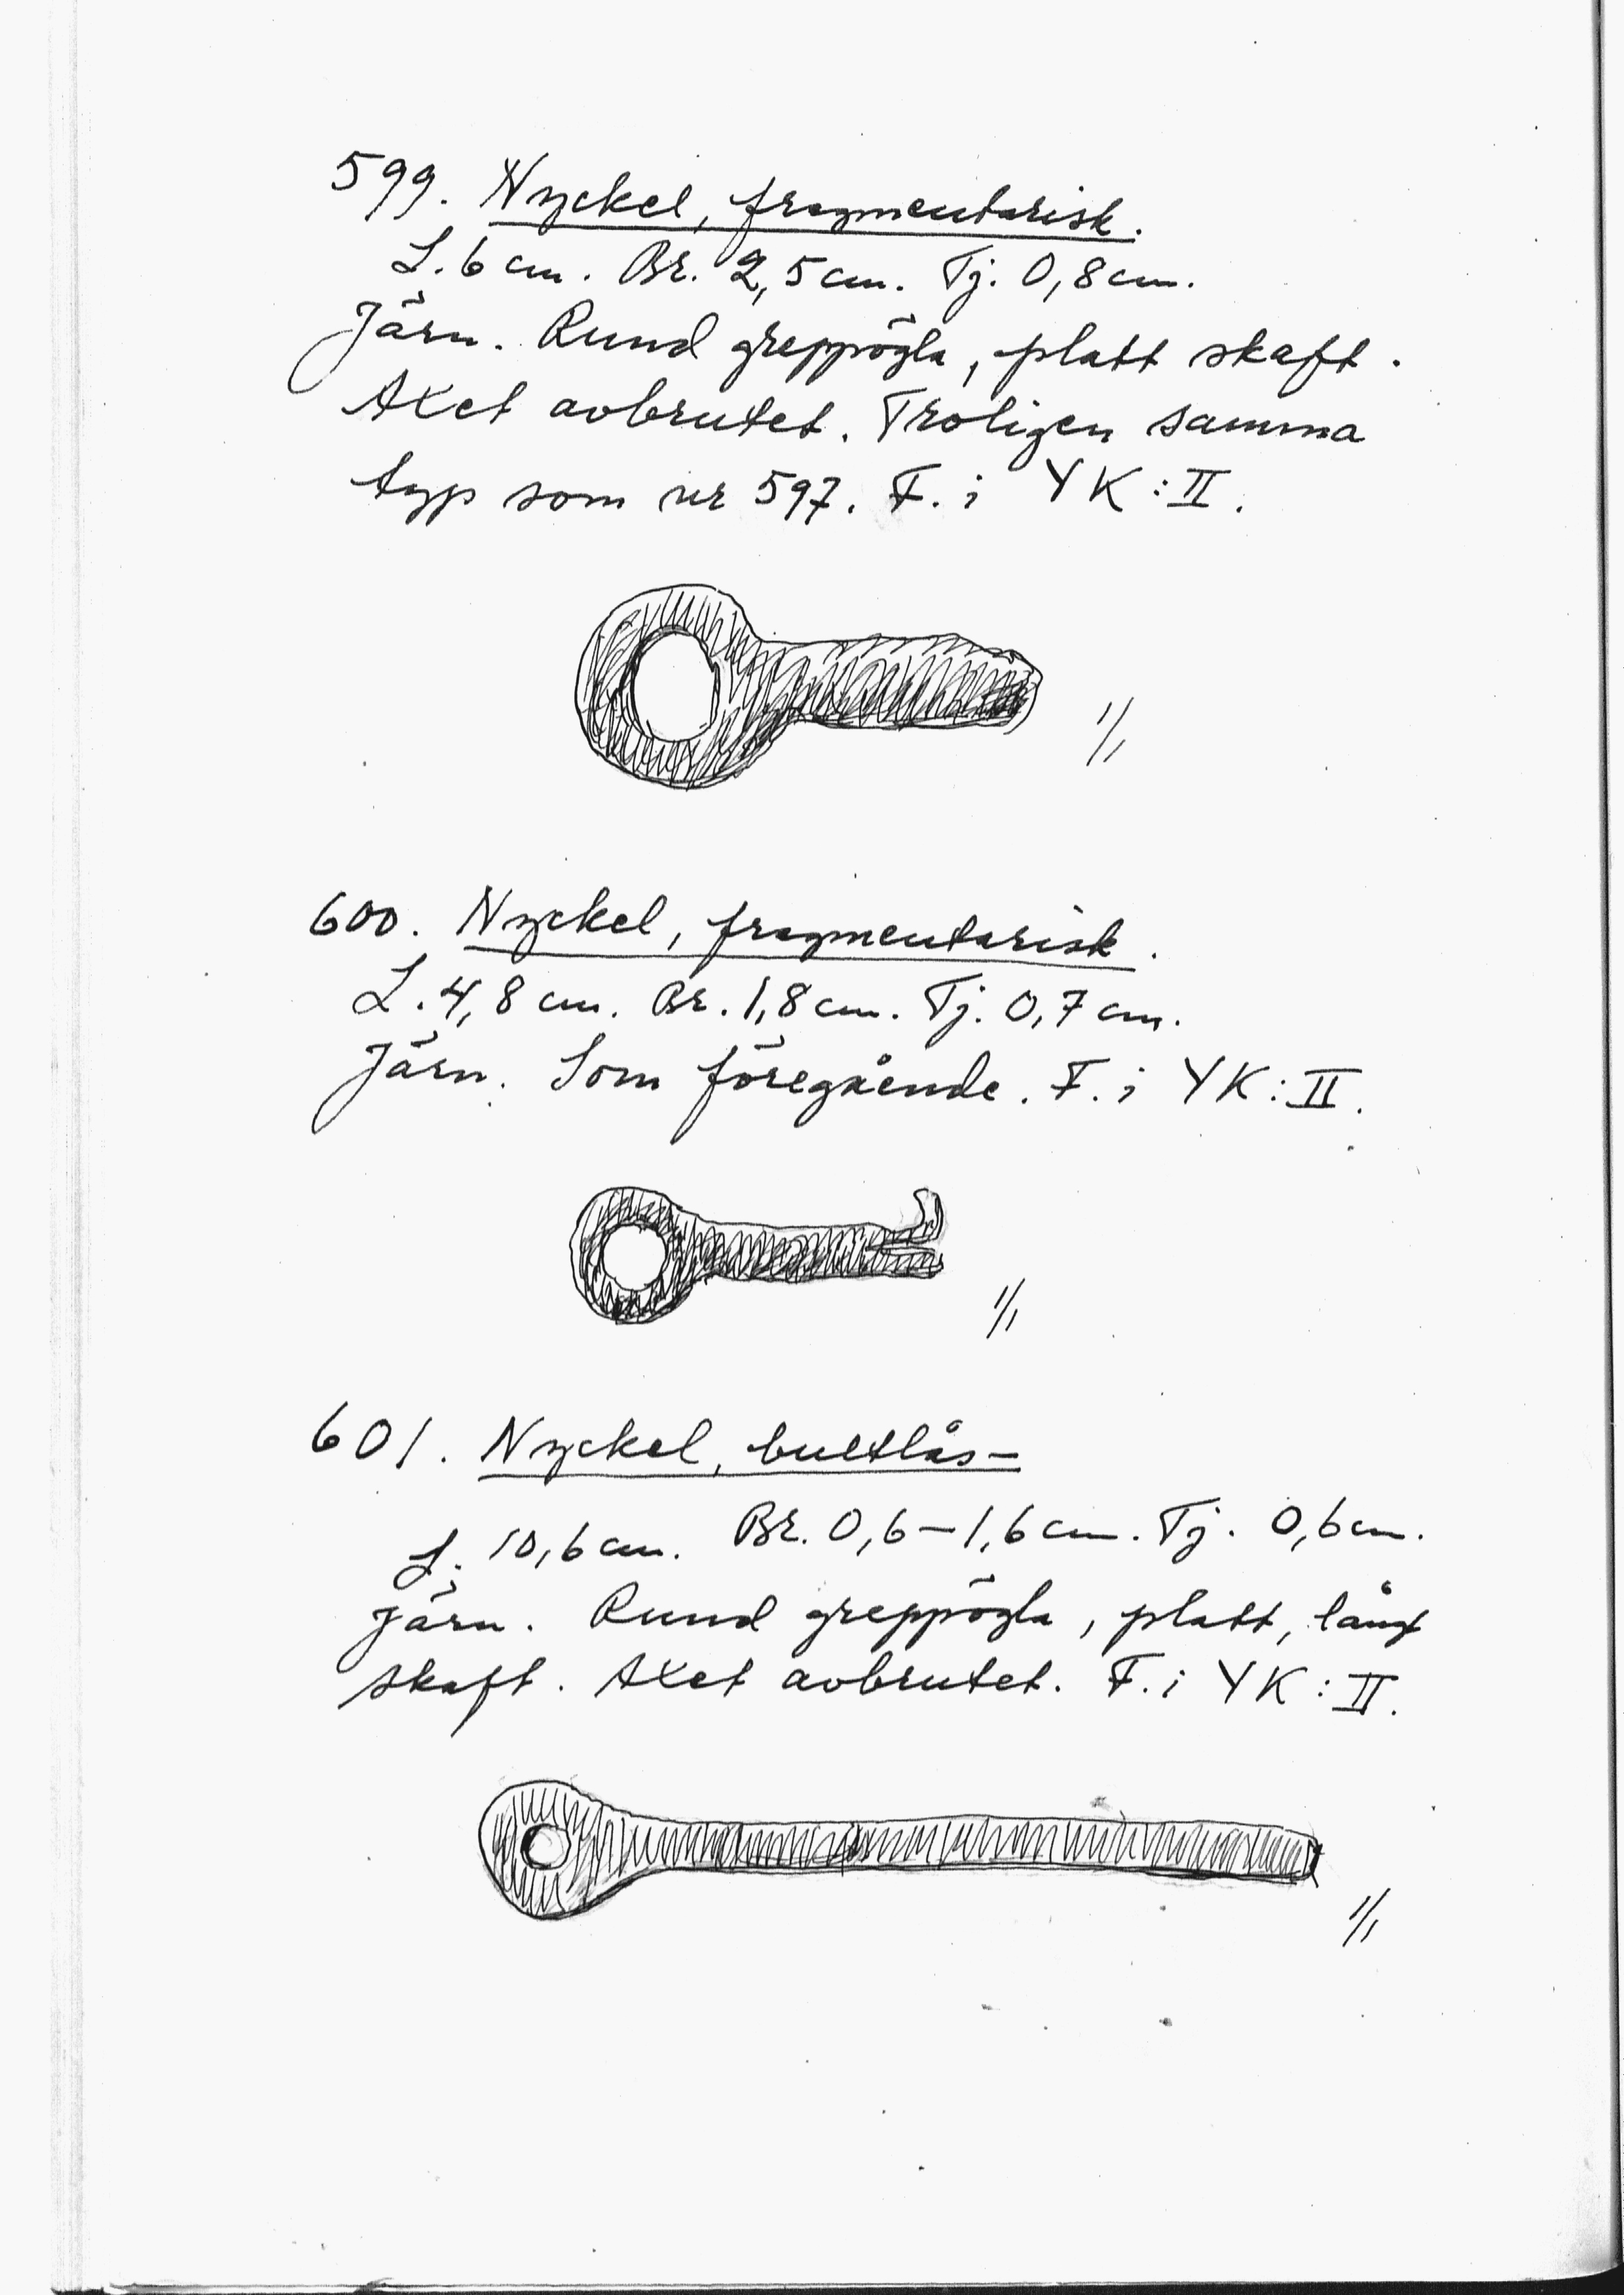 599. Nyckel, fragmentarisk.
L. 6 cm. Br. 2,5 cm. Tj. 0,8 cm.
Järn. Rund greppögla, platt skaft.
Axet avbrutet. Troligen samma
typ som nr 597. F. i YK:II.
1/1
600. Nyckel, fragmentarisk.
L. 4,8 cm. Br. 1,8 cm. Tj. 0,7 cm.
Järn. Som föregående. F. i YK:II.
1/1
601. Nyckel, bultlås-
L. 10,6 cm. Br. 0,6-1,6 cm. Tj. 0,6 cm.
Järn. Rund greppögla, platt, långt
skaft. Axet avbrutet. F. i YK:II.
1/1